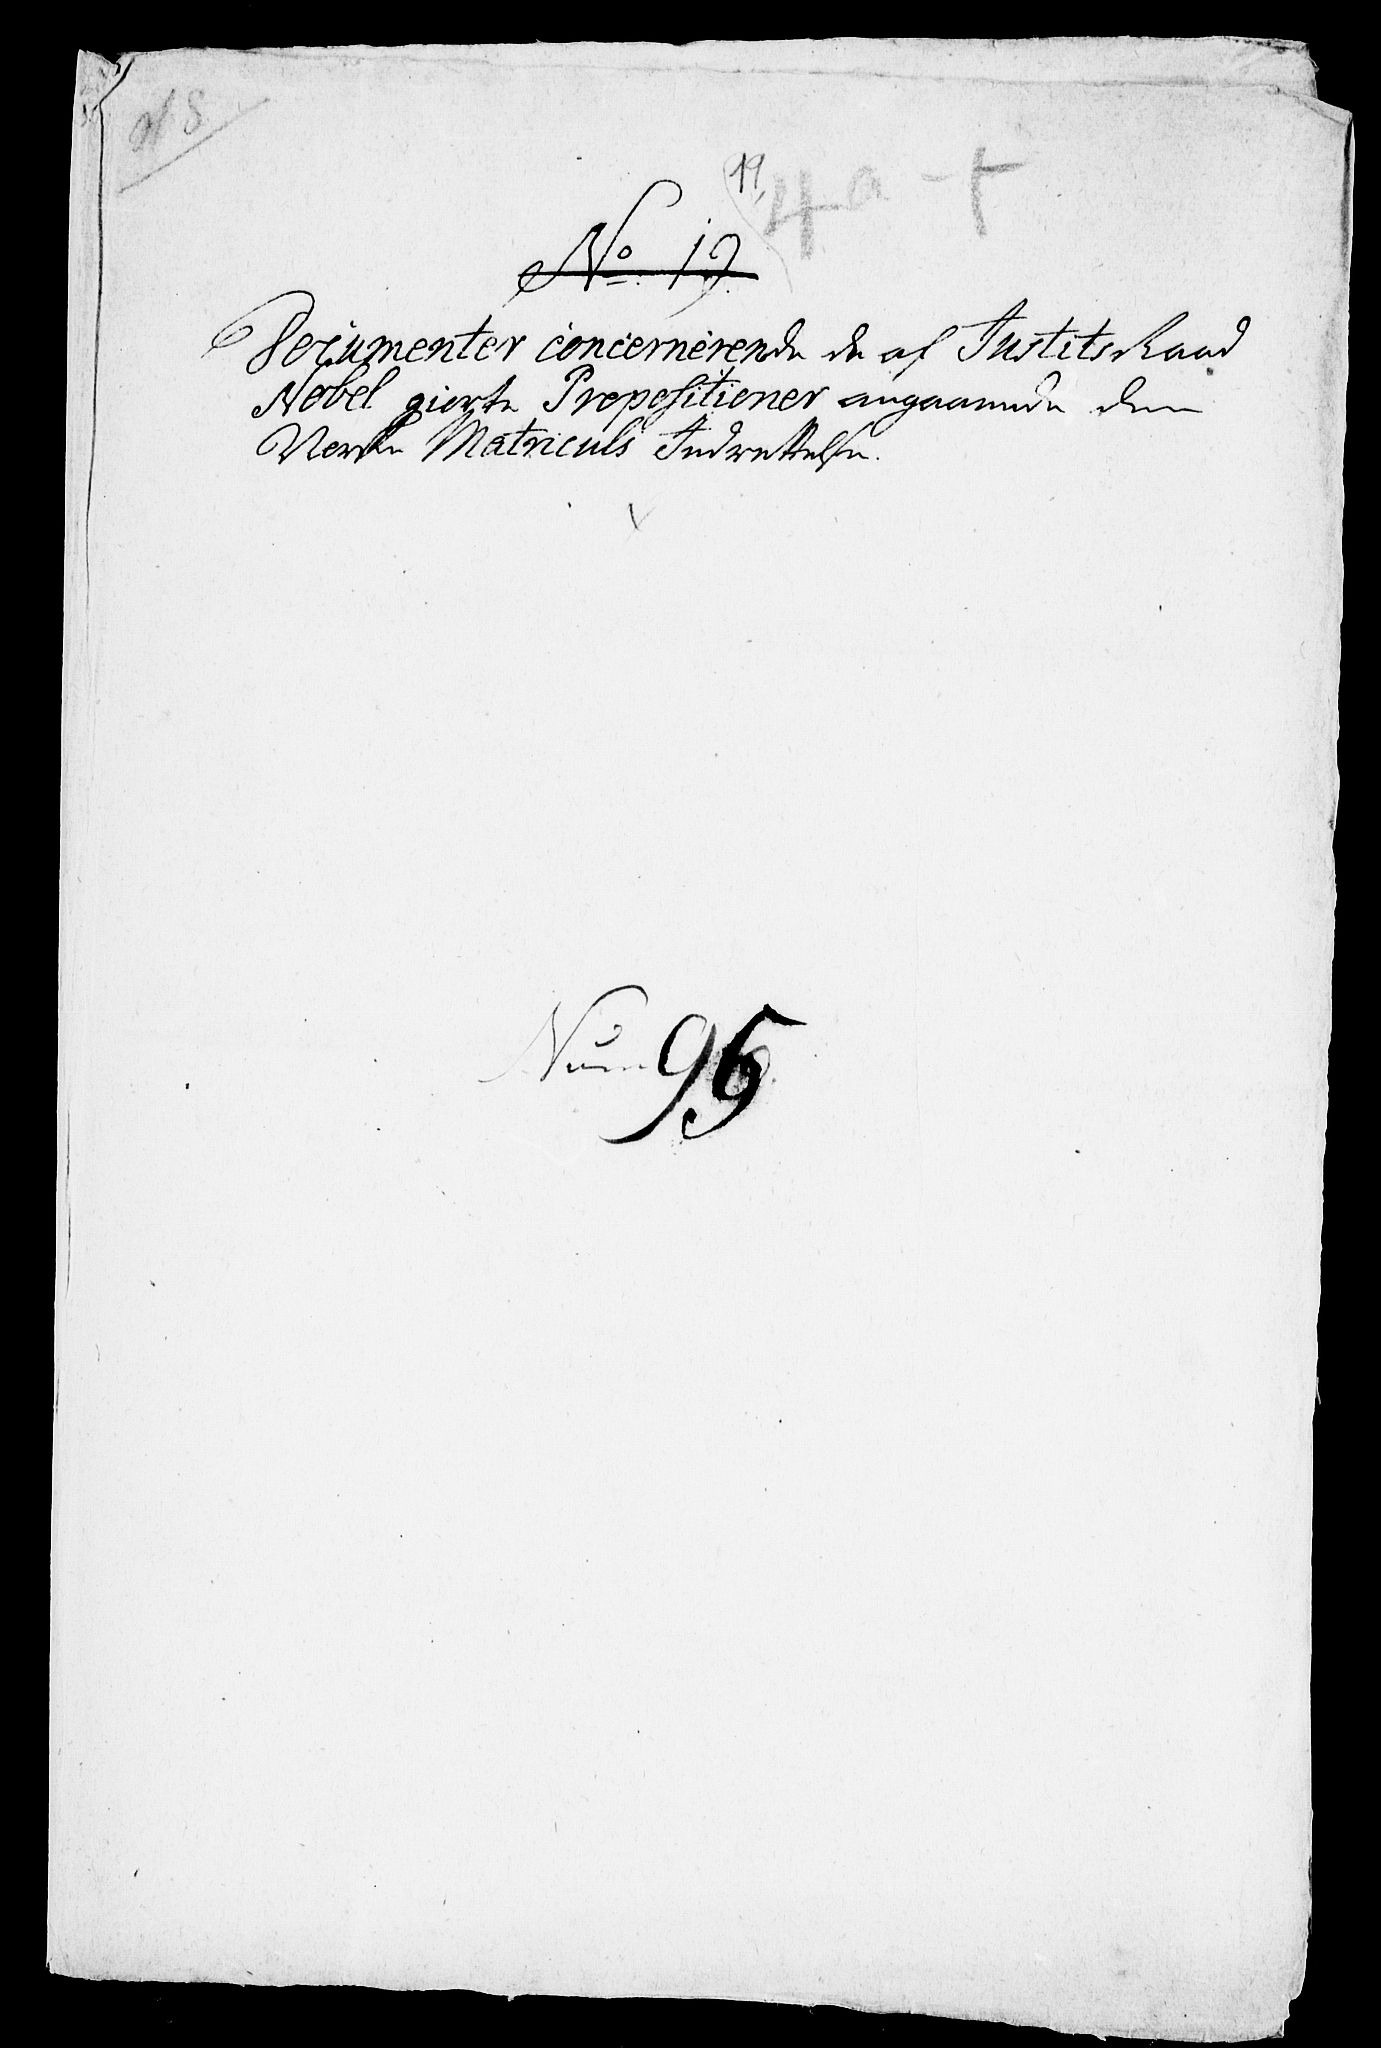 19,
4 a - t
No. 19.
Documenter concernerende de af Justits Raad
Nobel giorte Propositioner angaaende den
Norske Matriculs Indrettelse.
Num 95